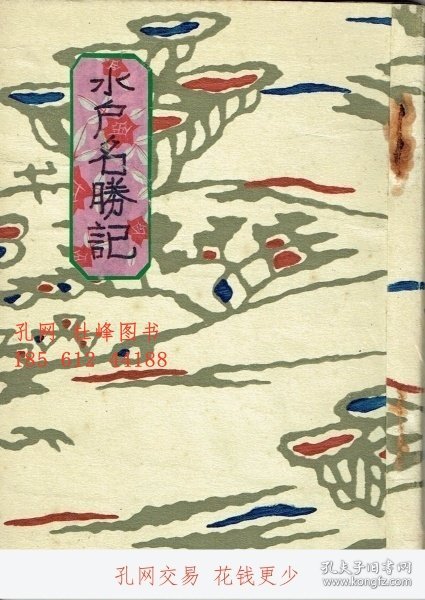 水戶名勝記
孔网 杜峰图书
185 612 64188
孔网交易 花钱更少
孔夫子旧书网
www.kongfz.com